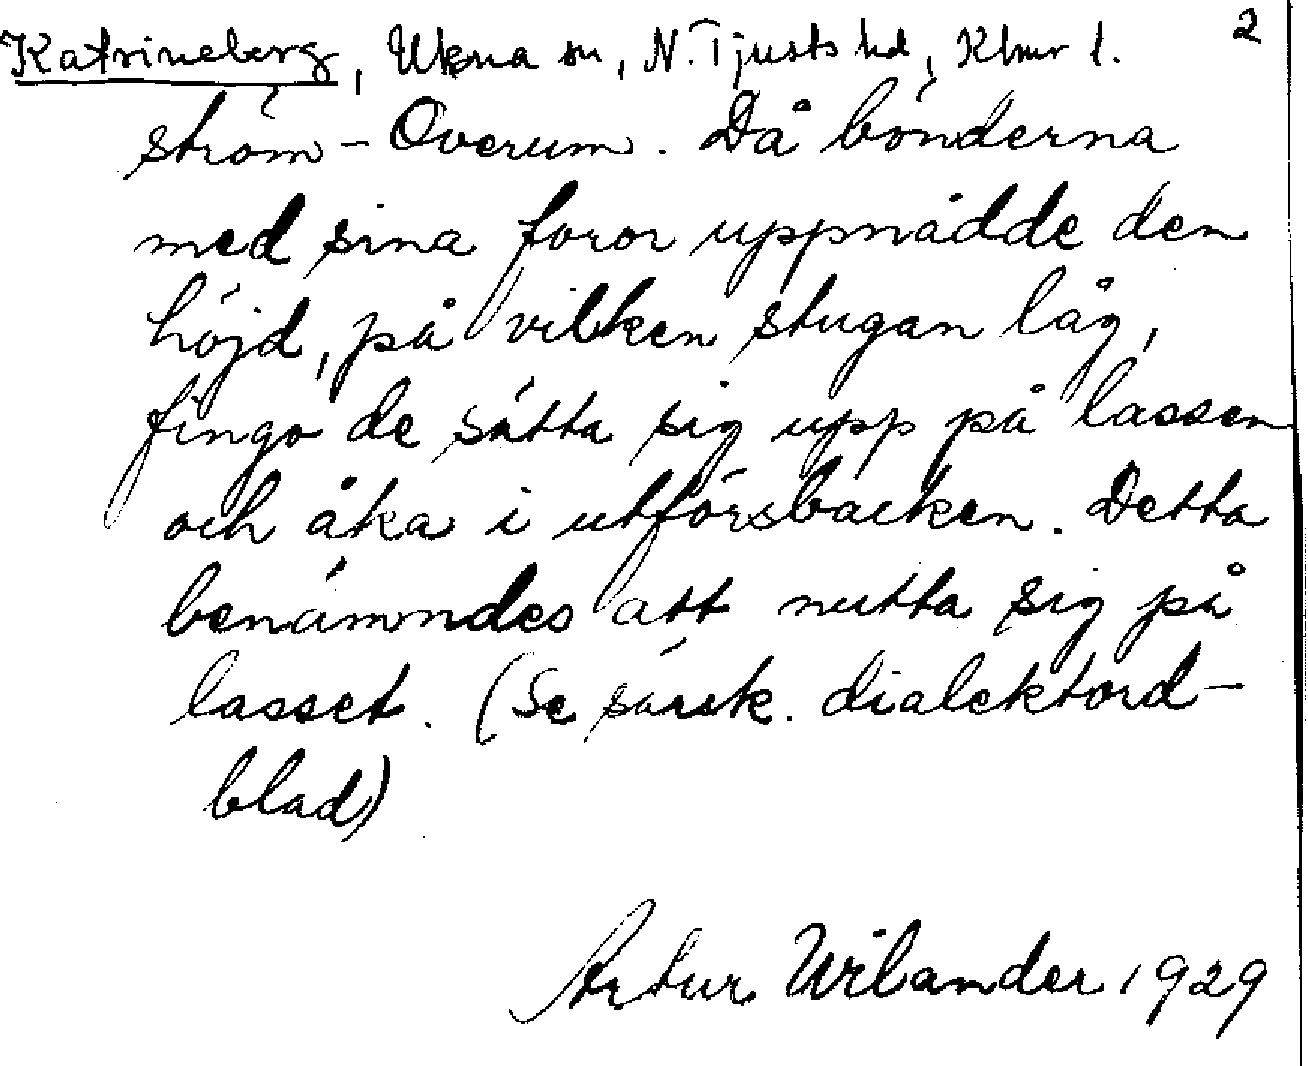 Katrineberg, Ukna sn, N. Tjusts hd, Klmr l. 2
ström - Överum. Då bönderna
med sina foror uppnådde den
höjd, på vilken stugan låg,
fingo de sätta sig upp på lassen
och åka i utförsbacken. Detta
benämndes att nutta sig på
lasset. (Se särsk. dialektord-
blad)
Artur Wilander 1929